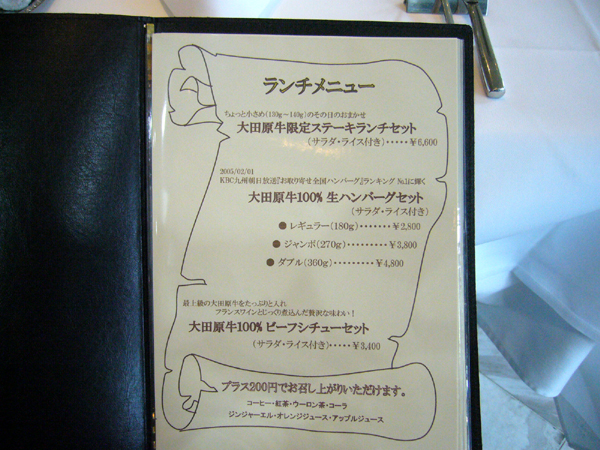 ランチメニュー
ちょっと小さめ(130g～140g)のその日のおまかせ
大田原牛限定ステーキランチセット
(サラダ・ライス付き)・・・・・￥6,600
2005/02/01
KBC九州朝日放送『お取り寄せ全国ハンバーグ』ランキング No.1に輝く
大田原牛100% 生ハンバーグセット
(サラダ・ライス付き)
● レギュラー(180g)・・・・・・・・￥2,800
● ジャンボ(270g)・・・・・・・・・￥3,800
● ダブル(360g)・・・・・・・・・￥4,800
最上級の大田原牛をたっぷりと入れ
フランスワインとじっくり煮込んだ贅沢な味わい！
大田原牛100% ビーフシチューセット
(サラダ・ライス付き)・・・・・￥3,400
プラス200円でお召し上がりいただけます。
コーヒー・紅茶・ウーロン茶・コーラ
ジンジャーエル・オレンジジュース・アップルジュース